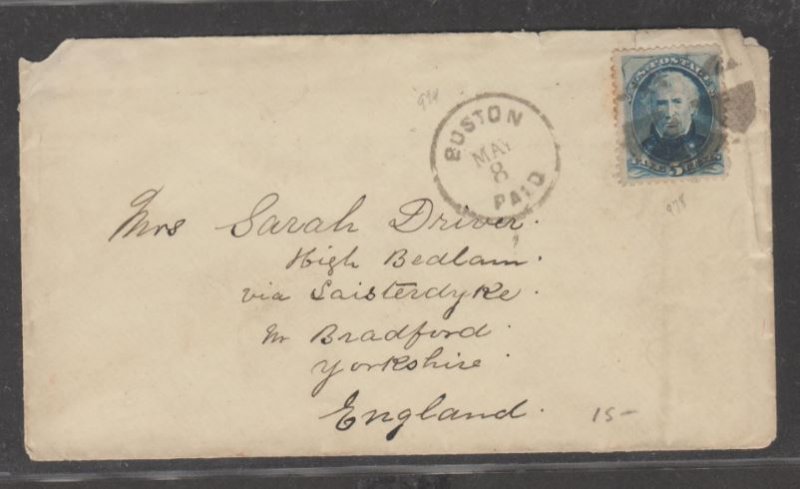 U.S. POSTAGE
978
BOSTON
MAY
8
PAID
978
Mrs Sarah Driver.
High Bedlam.
via Laisterdyke.
nr Bradford.
Yorkshire.
England.
15-